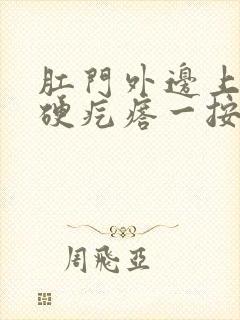 肛門外邊上
硬疙瘩一按
周飛亞